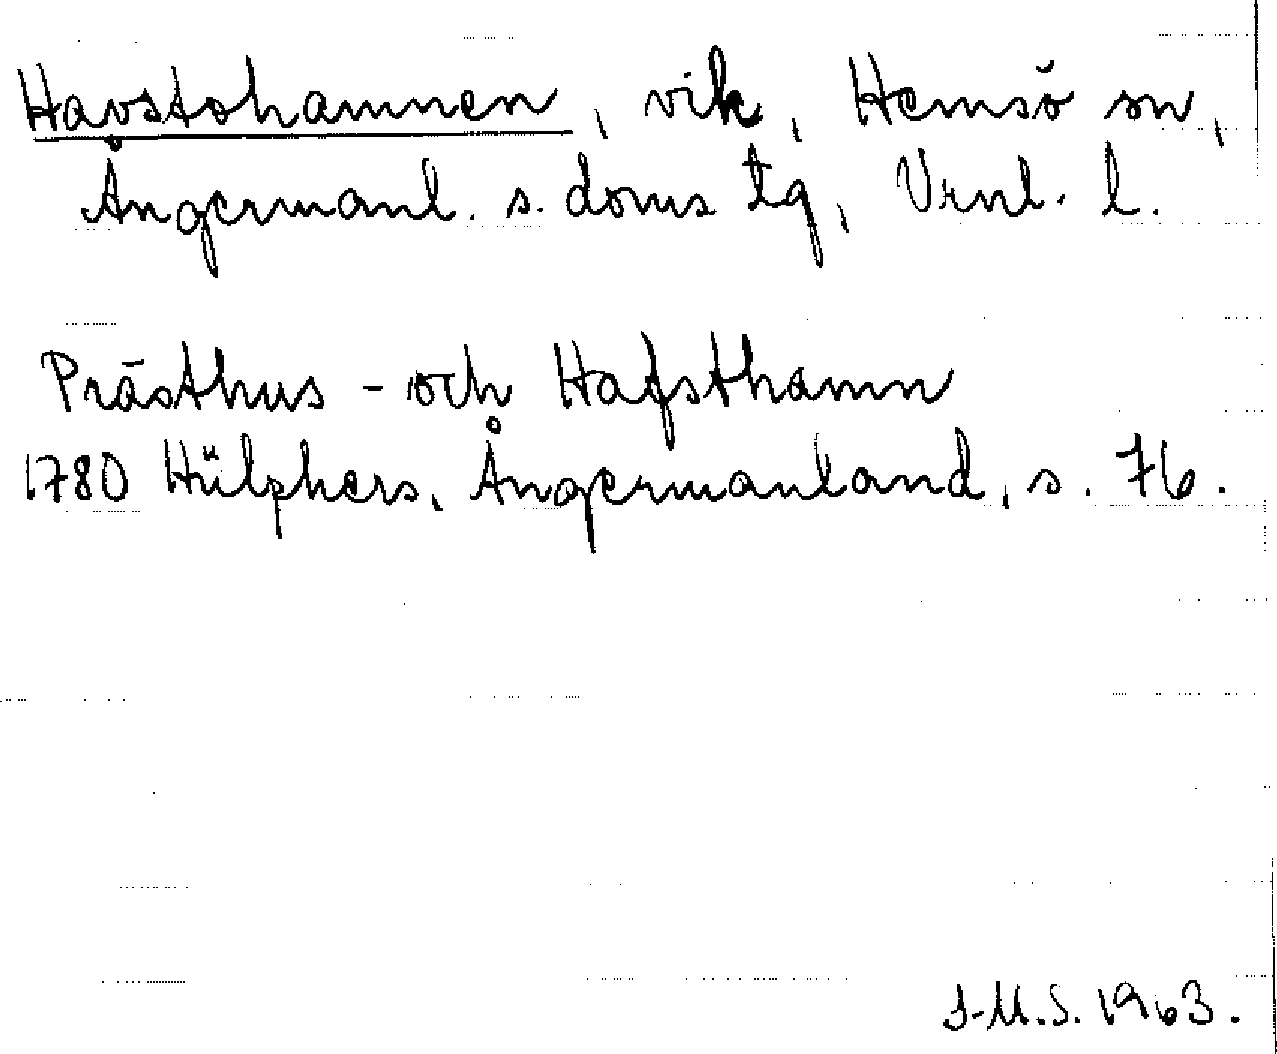 Havstohamnen, vik, Hemsö sn,
Ångermanl. s. doms tg, Vrnl. l.
Prästhus- och Hafsthamn
1780 Hülphers, Ångermanland, s. 76.
I-M.S. 1963.